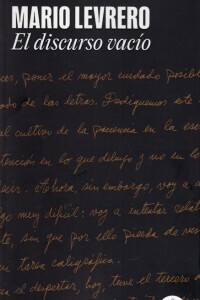 MARIO LEVRERO
El discurso vacío
cer, poner el mayor cuidado posible
do de las letras. Dediquemos este
al cultivo de la paciencia en la esc
tención en lo que dibujo y no en lo
cer. Ahora, sin embargo, voy a
go muy difícil: voy a intentar relat
te, sin que por ello pierda de vis
tarea caligráfica.
al despertar, hoy, tuve el tercero